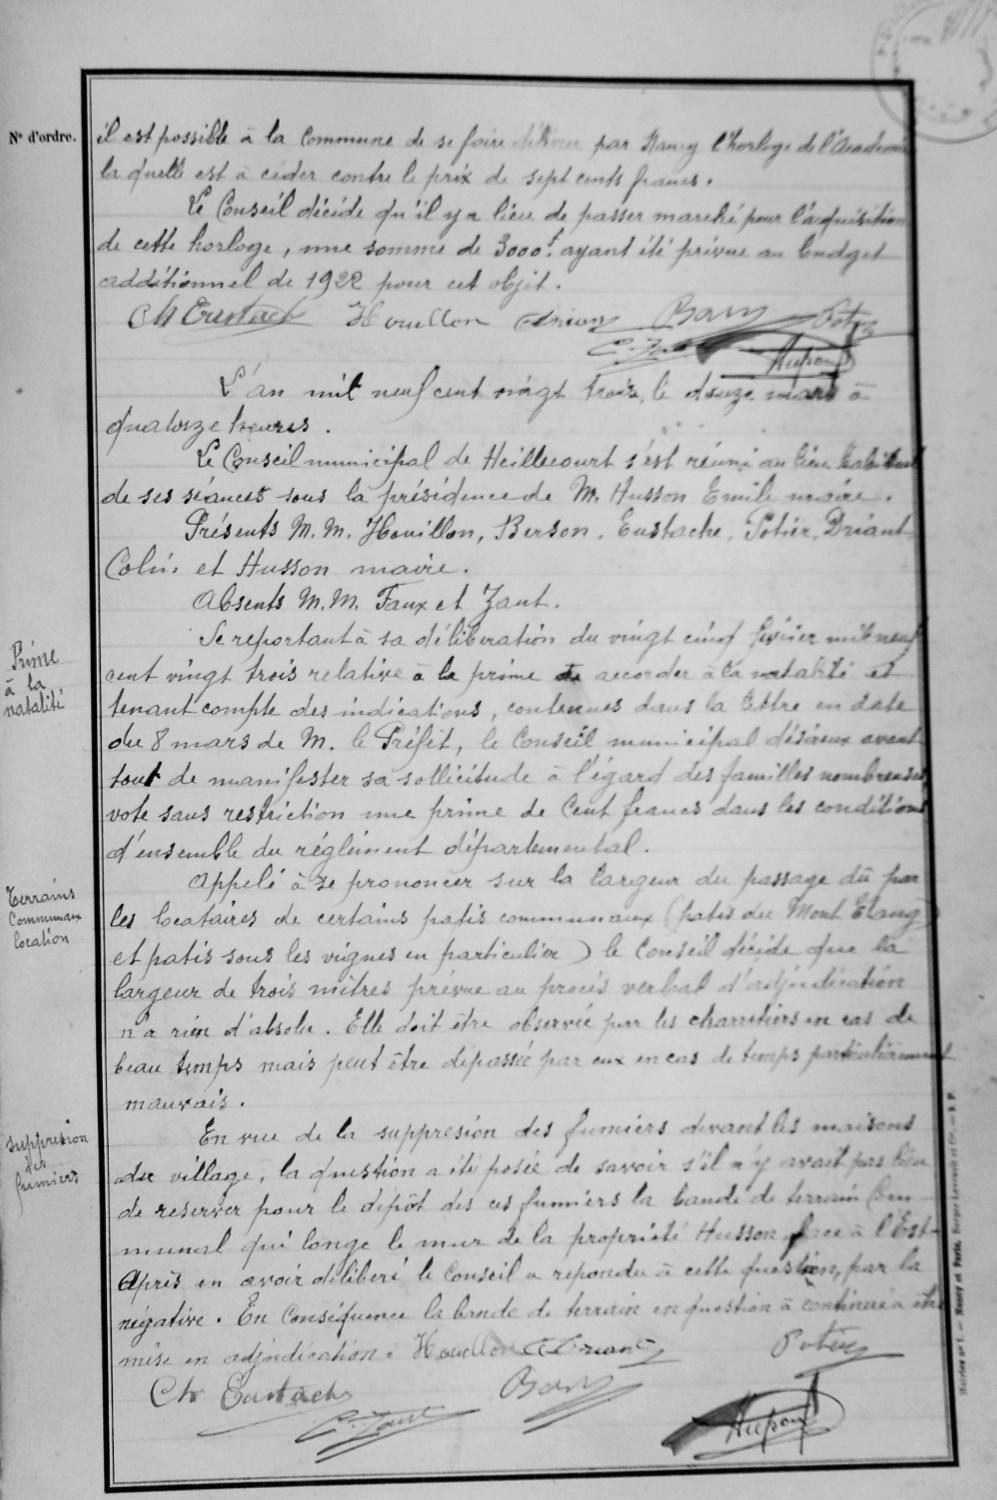 N° d'ordre.
il est possible à la Commune de se faire délivrer par Nancy l'horloge de l'Académie
la quelle est à céder contre le prix de sept cents francs.
Le Conseil décide qu'il y a lieu de passer marché pour l'acquisition
de cette horloge, une somme de 3000f. ayant été prévue au budget
additionnel de 1922 pour cet objet.
Ch Eustach Houillon Potier
L'an mil neuf cent vingt trois, le douze mars à
quatorze heures.
Le Conseil municipal de Heillecourt s'est réuni au lieu habituel
de ses séances sous la présidence de M. Husson Emile maire.
Présents M.M. Houillon, Berson, Eustache, Potier, Driant
Colin et Husson maire.
Absents M.M. Faux et Zant.
Prime
à la
natalité
Se reportant à sa délibération du vingt cinq février mil neuf
cent vingt trois relative à la prime à accorder à la natalité et
tenant compte des indications, contenues dans la lettre en date
du 8 mars de M. le Préfet, le Conseil municipal désireux avant
tout de manifester sa sollicitude à l'égard des familles nombreuses
vote sans restriction une prime de Cent francs dans les conditions
d'ensemble du réglément départemental.
Terrains
Communaux
location
Appelé à se prononcer sur la largeur du passage dû par
les locataires de certains patis communaux (patis du Mont Etang
et patis sous les vignes en particulier) le Conseil décide que la
largeur de trois mètres prévue au procès verbal d'adjudication
n'a rien d'absolu. Elle doit être observée par les charretiers en cas de
beau temps mais peut être dépassée par eux en cas de temps particulièrement
mauvais.
Suppression
des
fumiers
En vue de la suppresion des fumiers devant les maisons
du village, la question a été posée de savoir s'il n'y avait pas lieu
de reserver pour le dépôt des ces fumiers la bande de terrain Com
munal qui longe le mur de la propriété Husson, face à l'Est.
Après en avoir déliberé le Conseil a repondu à cette question, par la
négative. En Conséquence la bande de terrain en question à continuera être
mise en adjudication. Houillon Driant Potier
Ch Eustach